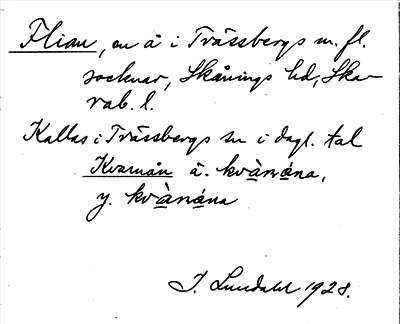 Flian, en å i Trässbergs m. fl.
socknar, Skånings hd, Ska-
rab. l.
Kallas i Trässbergs sn i dagl. tal
Kvarnån ä. kvànána,
y. kvànána
J. Lundahl 1928.